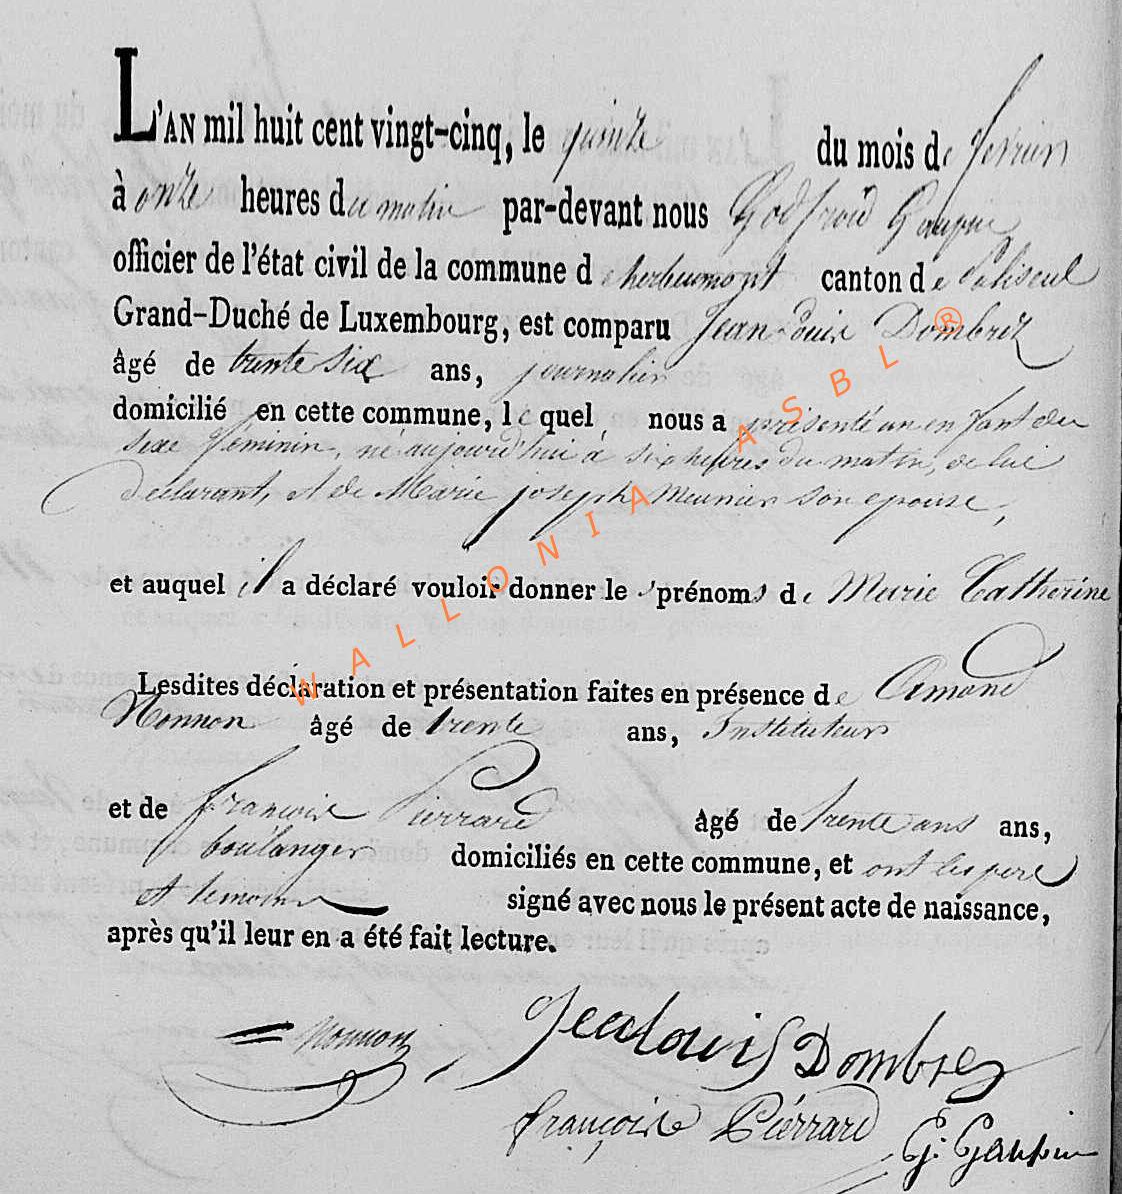 L'AN mil huit cent vingt-cinq, le quinze du mois de fevrier
à onze heures du matin par-devant nous Godfroid Gaupin
officier de l'état civil de la commune d herbeumont canton de Paliseul
Grand-Duché de Luxembourg, est comparu Jean Louis Dombrez
âgé de trente six ans, journalier
domicilié en cette commune, lequel nous a présenté un enfant du
sexe féminin, né aujourd'hui à six heures du matin, de lui
declarant, et de Marie joseph Meunier son epouse,
et auquel il a déclaré vouloir donner les prénoms de Marie Catherine
Lesdites déclaration et présentation faites en présence de Amand
Nonnon âgé de trente ans, Instituteur
et de françois Pierrard âgé de trente ans ans,
boulanger domiciliés en cette commune, et ont les pere
et temoins signé avec nous le présent acte de naissance,
après qu'il leur en a été fait lecture.
Nonnon Jealouis Dombrez
françois Piérrard G: Gaupin
WALLONIA ASBL ®